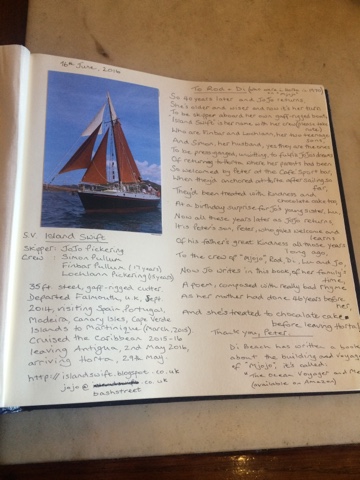 8th June, 2016
S.V. Island Swift
Skipper: JoJo Pickering
Crew: Simon Pullum
Finbar Pullum (17 years)
Lochlann Pickering (13 years)
35ft. steel, gaff-rigged cutter
Departed Falmouth, U.K., Sept
2014, visiting Spain, Portugal,
Madeira, Canary Isles, Cape Verde
Islands to Martinique (March, 2015)
Cruised the Caribbean 2015-16
leaving Antigua, 2nd May 2016,
arriving Horta, 29th May
http://islandswift.blogspot.co.uk
jojo@ bashstreet.co.uk
To Rod & Di
So 40 years later and JoJo returns,
She's older and wiser and now it's her turn
To be skipper aboard her own gaff-rigged boat,
Island Swift is her name with her
Who are Finbar and Lochlann, her two teenage
sons,
And Simon, her husband, yes they are the ones
To be press-ganged, unwitting, to fulfil JoJo's dreams
Of returning to Horta, where her parents had been
So welcomed by Peter at the Café Sport bar,
When they'd anchored at Horta after sailing so
far,
They'd been treated with kindness and
chocolate cake too,
At a birthday surprise for JoJo's young sister, Lu,
Now all these years later as JoJo returns,
It's Peter's son, Peter, who gives welcome and
learns
Of his father's great kindness all those years
long ago,
To the crew of "Mjojo", Rod, Di, Lu and Jo,
Now Jo writes in this book, after her family's
time,
A poem, composed with really bad rhyme
As her mother had done 40 years before
her,
And she's treated to chocolate cake
before leaving Horta
Thank you, Peter.
Di Bean has written a book
about the building and voyage
of "Mjojo", it's called:
"The Ocean Voyager and Me"
(available on Amazon)